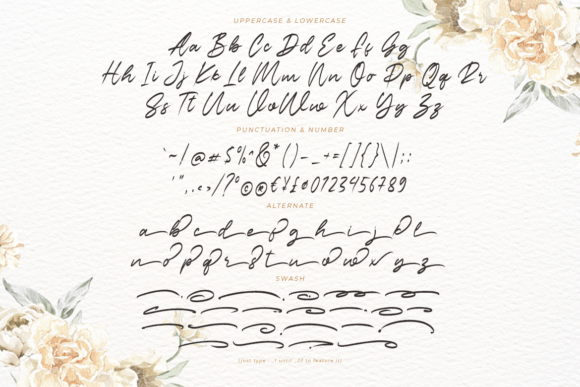 UPPERCASE & LOWERCASE
Aa Bb Cc Dd Ee Ff Gg
Hh Ii Jj Kk Ll Mm Nn Oo Pp Qq Rr
Ss Tt Uu Vv Ww Xx Yy Zz
PUNCTUATION & NUMBER
`~!@#$%^&*()-_+=[]{}\|;:
'",.<>/?°©®€¥£¢0123456789
ALTERNATE
a b c d e f g h i j k l
n o p q r s t u v w x y z
SWASH